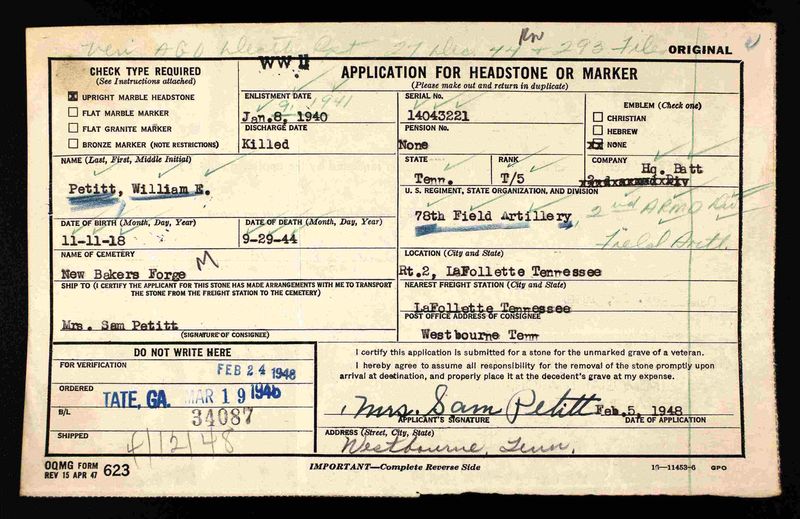 Veri AGO Death Cert 27 Dec 44 + 293 File
WW II
ORIGINAL
CHECK TYPE REQUIRED
(See Instructions attached)
UPRIGHT MARBLE HEADSTONE
FLAT MARBLE MARKER
FLAT GRANITE MARKER
BRONZE MARKER (NOTE RESTRICTIONS)
APPLICATION FOR HEADSTONE OR MARKER
(Please make out and return in duplicate)
ENLISTMENT DATE
9, 1941
Jan.8, 1940
DISCHARGE DATE
Killed
SERIAL No.
14043221
PENSION No.
None
EMBLEM (Check one)
CHRISTIAN
HEBREW
NONE
NAME (Last, First, Middle Initial)
Petitt, William E.
STATE
Tenn.
RANK
T/5
COMPANY
Hq. Batt
U. S. REGIMENT, STATE ORGANIZATION, AND DIVISION
78th Field Artillery
2nd ARMD Div
Field Arth.
DATE OF BIRTH (Month, Day, Year)
11-11-18
DATE OF DEATH (Month, Day, Year)
9-29-44
NAME OF CEMETERY
New Bakers Forge M
LOCATION (City and State)
Rt.2, LaFollette Tennessee
SHIP TO (I CERTIFY THE APPLICANT FOR THIS STONE HAS MADE ARRANGEMENTS WITH ME TO TRANSPORT
THE STONE FROM THE FREIGHT STATION TO THE CEMETERY)
Mrs. Sam Petitt
(SIGNATURE OF CONSIGNEE)
NEAREST FREIGHT STATION (City and State)
LaFollette Tennessee
POST OFFICE ADDRESS OF CONSIGNEE
Westbourne Tenn
DO NOT WRITE HERE
FOR VERIFICATION
FEB 24 1948
ORDERED
TATE, GA. MAR 19 1948
B/L
34087
SHIPPED
4/12/48
I certify this application is submitted for a stone for the unmarked grave of a veteran.
I hereby agree to assume all responsibility for the removal of the stone promptly upon
arrival at destination, and properly place it at the decedent's grave at my expense.
Mrs. Sam Petitt Feb.5, 1948
APPLICANT'S SIGNATURE DATE OF APPLICATION
ADDRESS (Street, City, State)
Westbourne, Tenn.
OQMG FORM 623
REV 15 APR 47
IMPORTANT—Complete Reverse Side
16—11453-6 GPO